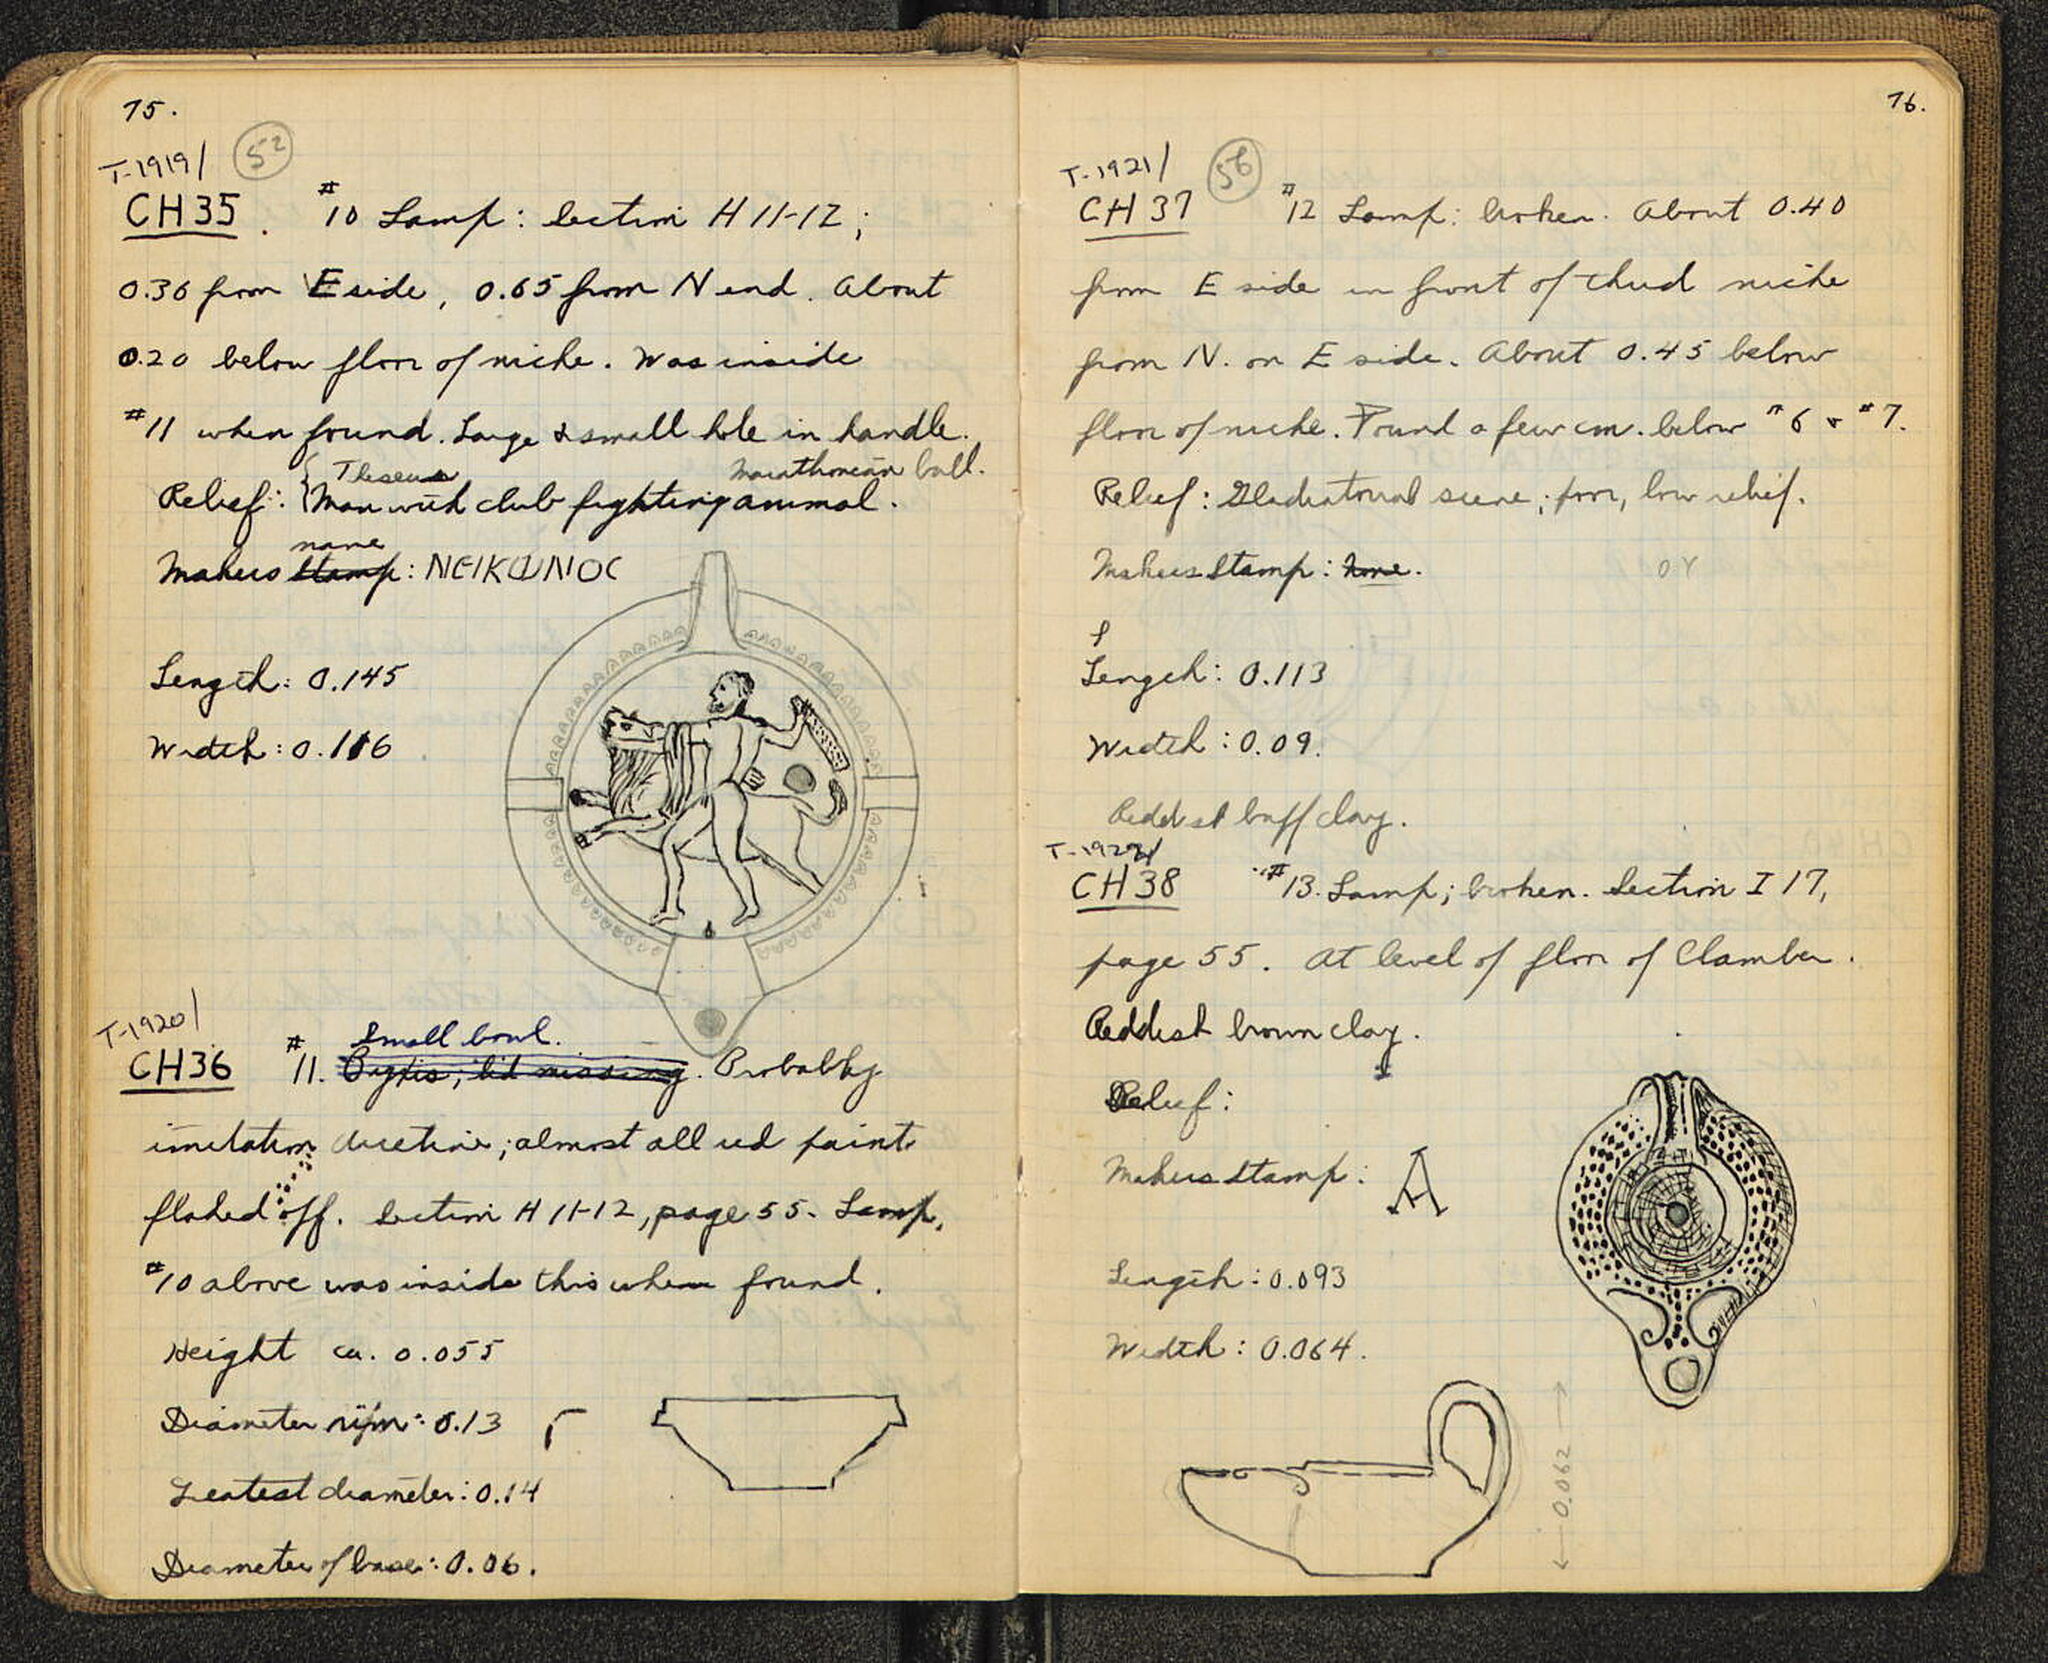 75.
T-1919/ 52
CH35. #10 Lamp: Section H 11-12;
0.36 from E side, 0.65 from N end. About
0.20 below floor of niche. Was inside
#11 when found. Large & small hole in handle.
Theseus Marathonean bull.
Relief: Man with club fighting animal.
name
Makers Stamp: ΝΕΙΚΩΝΟC
Length: 0.145
Width: 0.116
T-1920/
Small bowl.
CH36 #11. Pyxis; lid missing. Probably
imitation Arretine; almost all red paint
flaked off. Section H 11-12, page 55. Lamp,
#10 above was inside this when found.
Height ca. 0.055
Diameter rim: 0.13
Greatest diameter: 0.14
Diameter of base: 0.06.
76.
T-1921/ 56
CH37 #12 Lamp: broken. About 0.40
from E side in front of third niche
from N. on E side. About 0.45 below
floor of niche. Found a few cm. below #6 & #7.
Relief: Gladiatorial scene; poor, low relief.
Makers Stamp: None. ΟΥ
Length: 0.113
Width: 0.09.
Reddish buff clay.
T-1922/
CH38 #13. Lamp; broken. Section I 17,
page 55. At level of floor of Chamber.
Reddish brown clay.
Relief:
Makers Stamp: A
Length: 0.093
Width: 0.064.
0.062